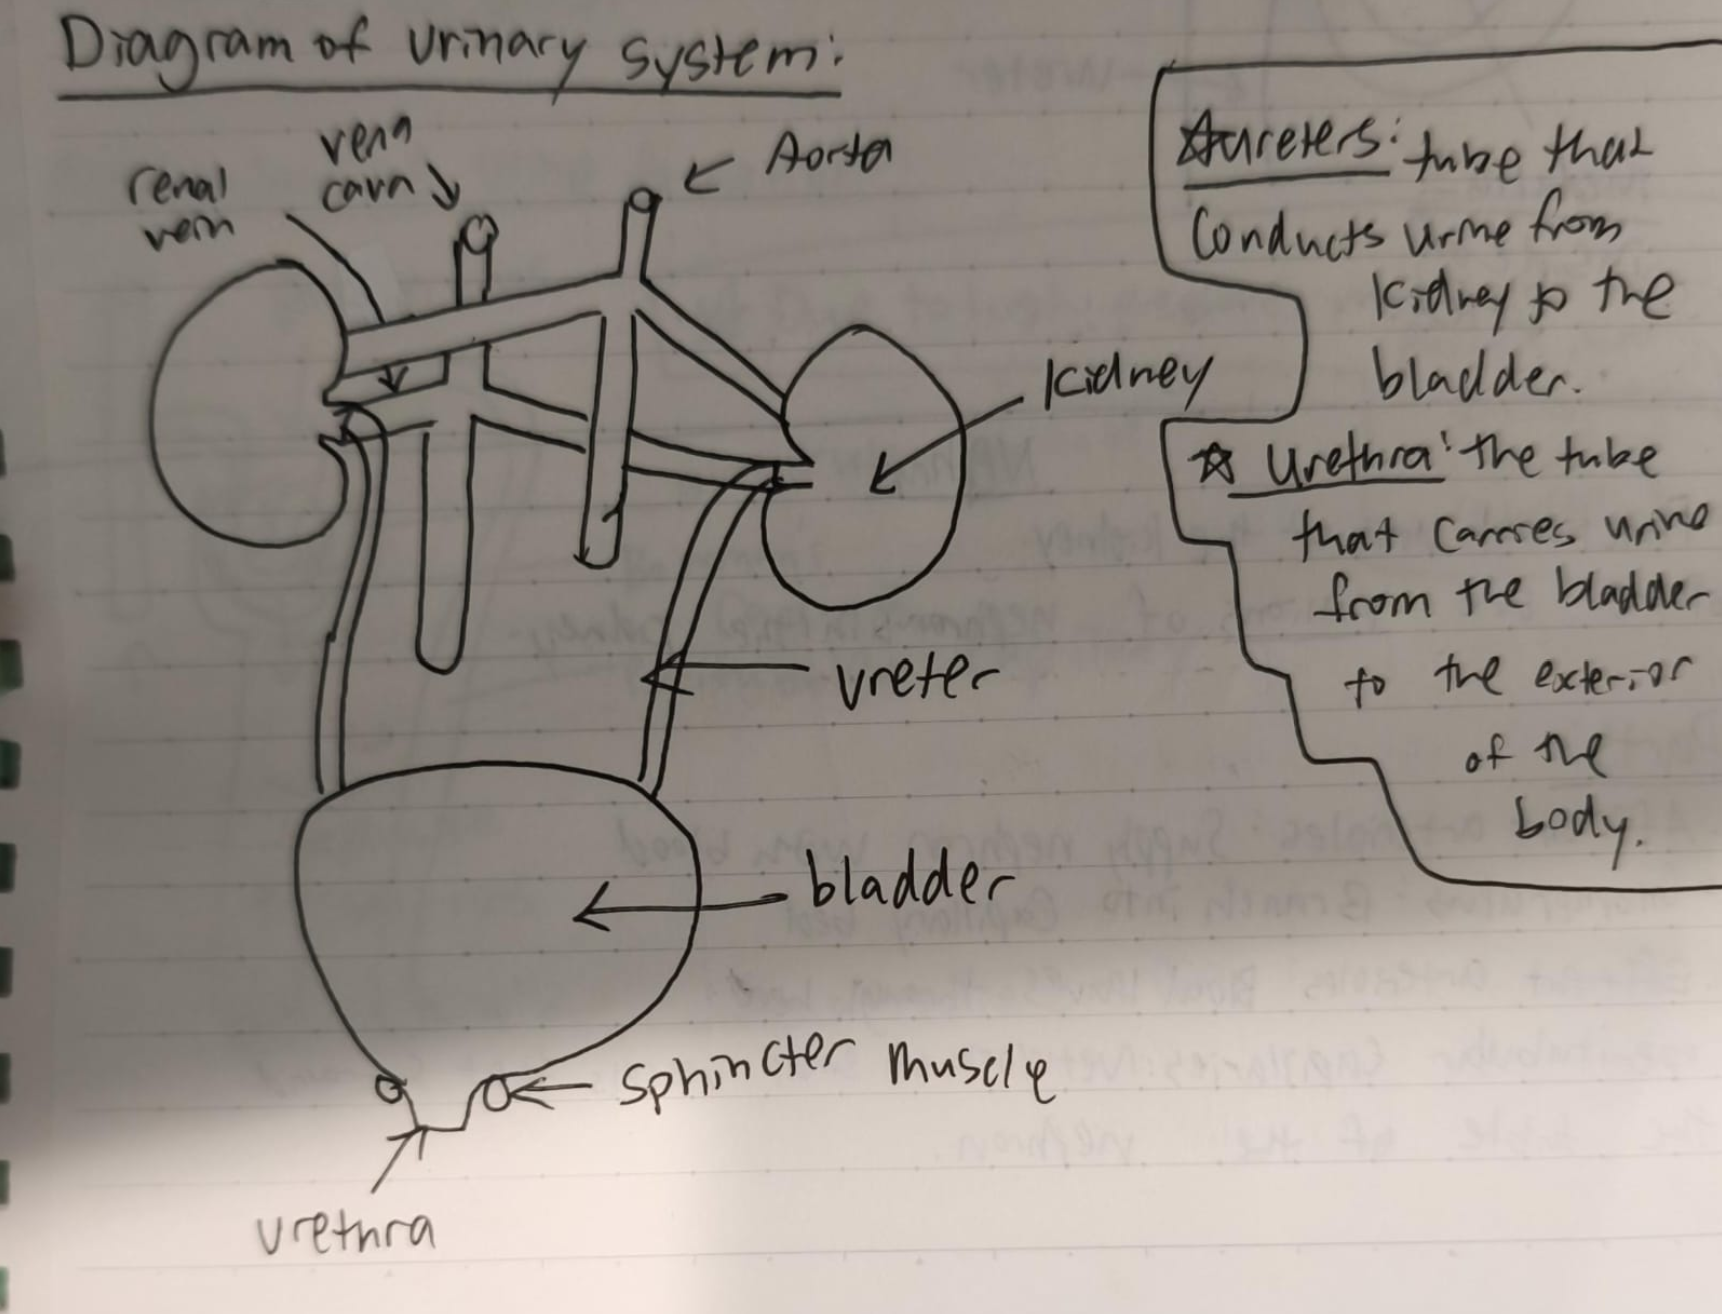 Diagram of urinary system:
renal
vein
vena
cava
Aorta
kidney
ureter
bladder
sphincter muscle
urethra
☆ureters: tube that
conducts urine from
kidney to the
bladder.
☆ Urethra: the tube
that carries urine
from the bladder
to the exterior
of the
body.